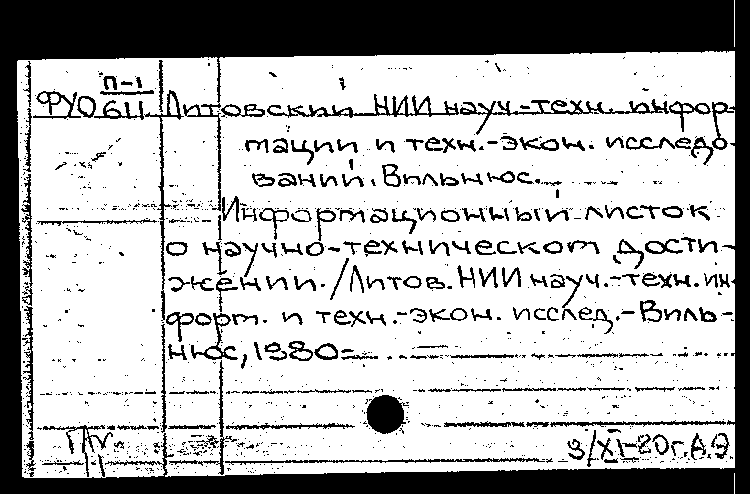 П-1
ФУО611 Литовский НИИ науч.-техн. инфор-
мации и техн.-экон. исследо-
ваний. Вильнюс.
Информационный листок
о научно-техническом дости-
жении. /Литов. НИИ науч.-техн. ин-
форм. и техн.-экон. исслед.-Виль-
нюс, 1980-
3/XI-80г. А.Э